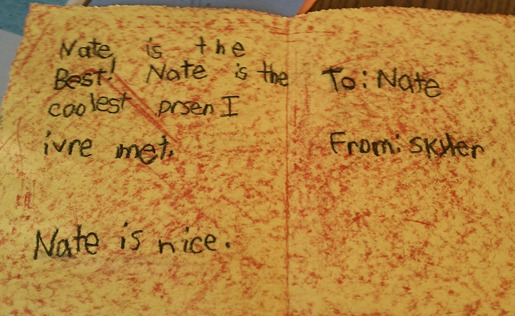 Nate is the
Best! Nate is the
coolest prsen I
ivre met.
Nate is nice.
To: Nate
From: Skyler